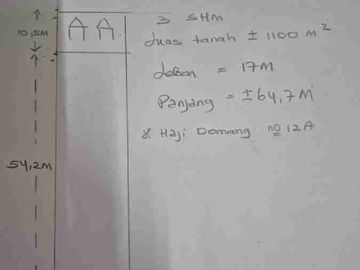 3 SHM
10,5M
Luas tanah ± 1100 m²
depan = 17M
Panjang = ± 64,7M.
Jl Haji Domang no 12A
54,2M